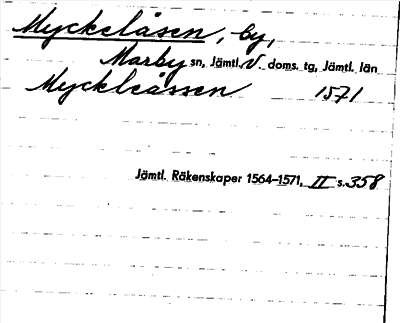 Myckelåsen, by,
Marby sn, Jämtl. V. doms. tg, Jämtl. län
Myckleåssen 1571
Jämtl. Räkenskaper 1564-1571, II s. 358